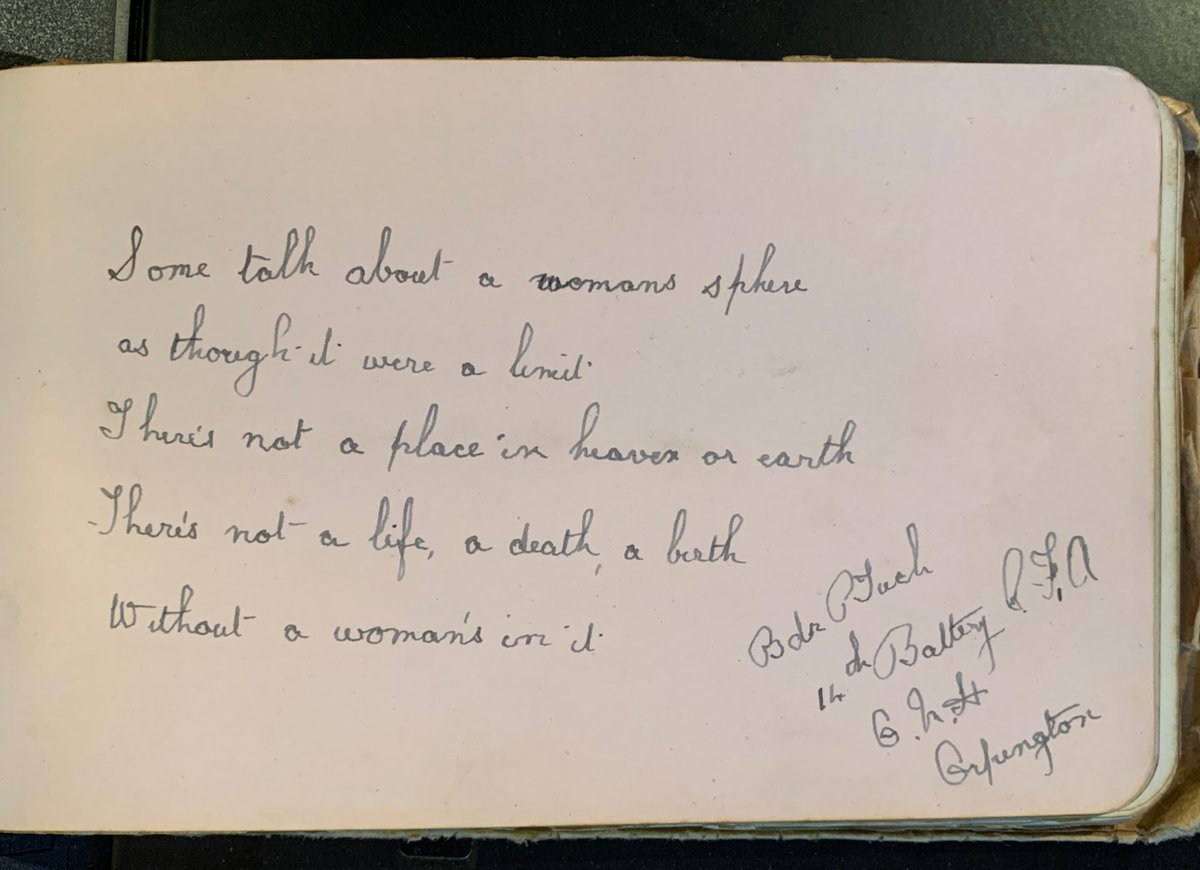 Some talk about a womans sphere
as though it were a limit
There's not a place in heaven or earth
There's not a life, a death, a birth
Without a woman's in it
Bdr
14th Battery R.F.A
O.M.H
Orpington